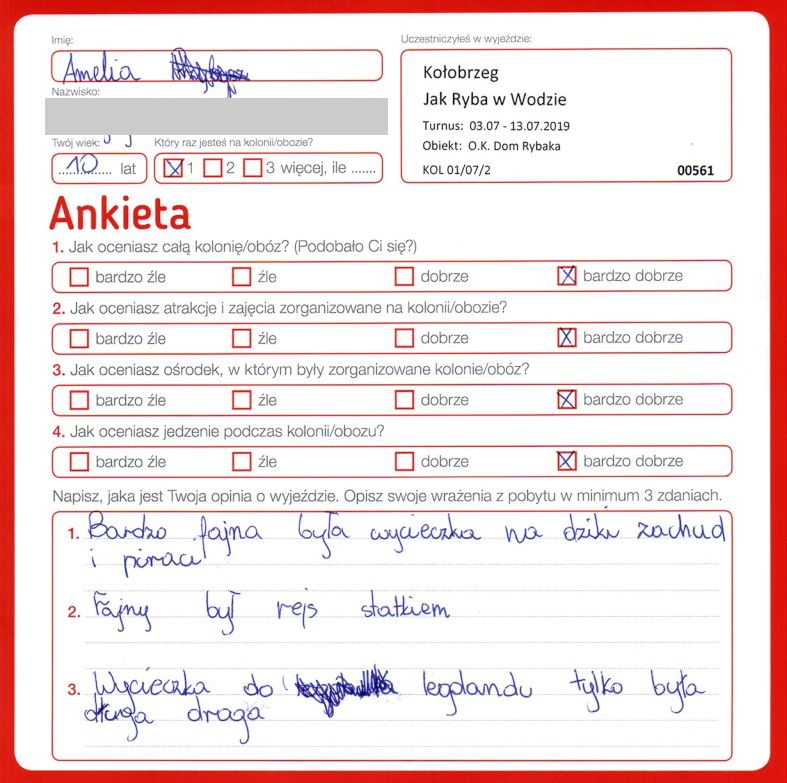 Imię:
Uczestniczyłeś w wyjeździe:
Amelia
Kołobrzeg
Jak Ryba w Wodzie
Nazwisko:
Turnus: 03.07 - 13.07.2019
Obiekt: O.K. Dom Rybaka
KOL 01/07/2 00561
Twój wiek: Który raz jesteś na kolonii/obozie?
10 lat 1 2 3 więcej, ile .......
Ankieta
1. Jak oceniasz całą kolonię/obóz? (Podobało Ci się?)
bardzo źle źle dobrze bardzo dobrze
2. Jak oceniasz atrakcje i zajęcia zorganizowane na kolonii/obozie?
bardzo źle źle dobrze bardzo dobrze
3. Jak oceniasz ośrodek, w którym były zorganizowane kolonie/obóz?
bardzo źle źle dobrze bardzo dobrze
4. Jak oceniasz jedzenie podczas kolonii/obozu?
bardzo źle źle dobrze bardzo dobrze
Napisz, jaka jest Twoja opinia o wyjeździe. Opisz swoje wrażenia z pobytu w minimum 3 zdaniach.
1. Bardzo fajna była wycieczka na dziki zachud
i piraci
2. Fajny był rejs statkiem
3. Wycieczka do legolandu tylko była
długa droga